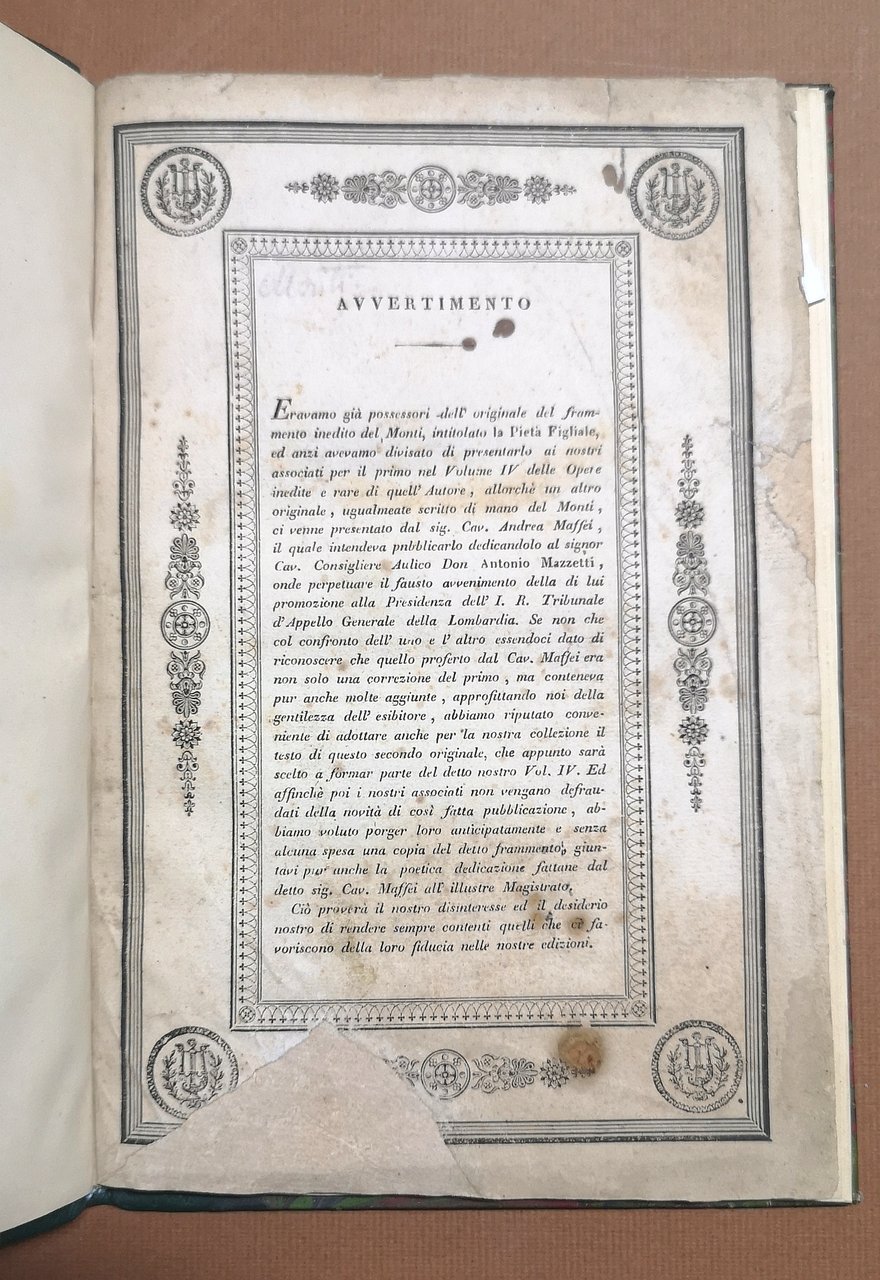 Monti
AVVERTIMENTO
Eravamo già possessori dell' originale del fram-
mento inedito del Monti, intitolato la Pietà Figliale,
ed anzi avevamo divisato di presentarlo ai nostri
associati per il primo nel Volume IV delle Opere
inedite e rare di quell' Autore, allorchè un altro
originale, ugualmeate scritto di mano del Monti,
ci venne presentato dal sig. Cav. Andrea Maffei,
il quale intendeva pnbblicarlo dedicandolo al signor
Cav. Consigliere Aulico Don Antonio Mazzetti,
onde perpetuare il fausto avvenimento della di lui
promozione alla Presidenza dell' I. R. Tribunale
d'Appello Generale della Lombardia. Se non che
col confronto dell' uno e l' altro essendoci dato di
riconoscere che quello proferto dal Cav. Maffei era
non solo una correzione del primo, ma conteneva
pur anche molte aggiunte, approfittando noi della
gentilezza dell' esibitore, abbiamo riputato conve-
niente di adottare anche per la nostra collezione il
testo di questo secondo originale, che appunto sarà
scelto a formar parte del detto nostro Vol. IV. Ed
affinchè poi i nostri associati non vengano defrau-
dati della novità di così fatta pubblicazione, ab-
biamo voluto porger loro anticipatamente e senza
alcuna spesa una copia del detto frammento, giun-
tavi pur anche la poetica dedicazione fattane dal
detto sig. Cav. Maffei all' illustre Magistrato.
Ciò proverà il nostro disinteresse ed il desiderio
nostro di rendere sempre contenti quelli che ci fa-
voriscono della loro fiducia nelle nostre edizioni.